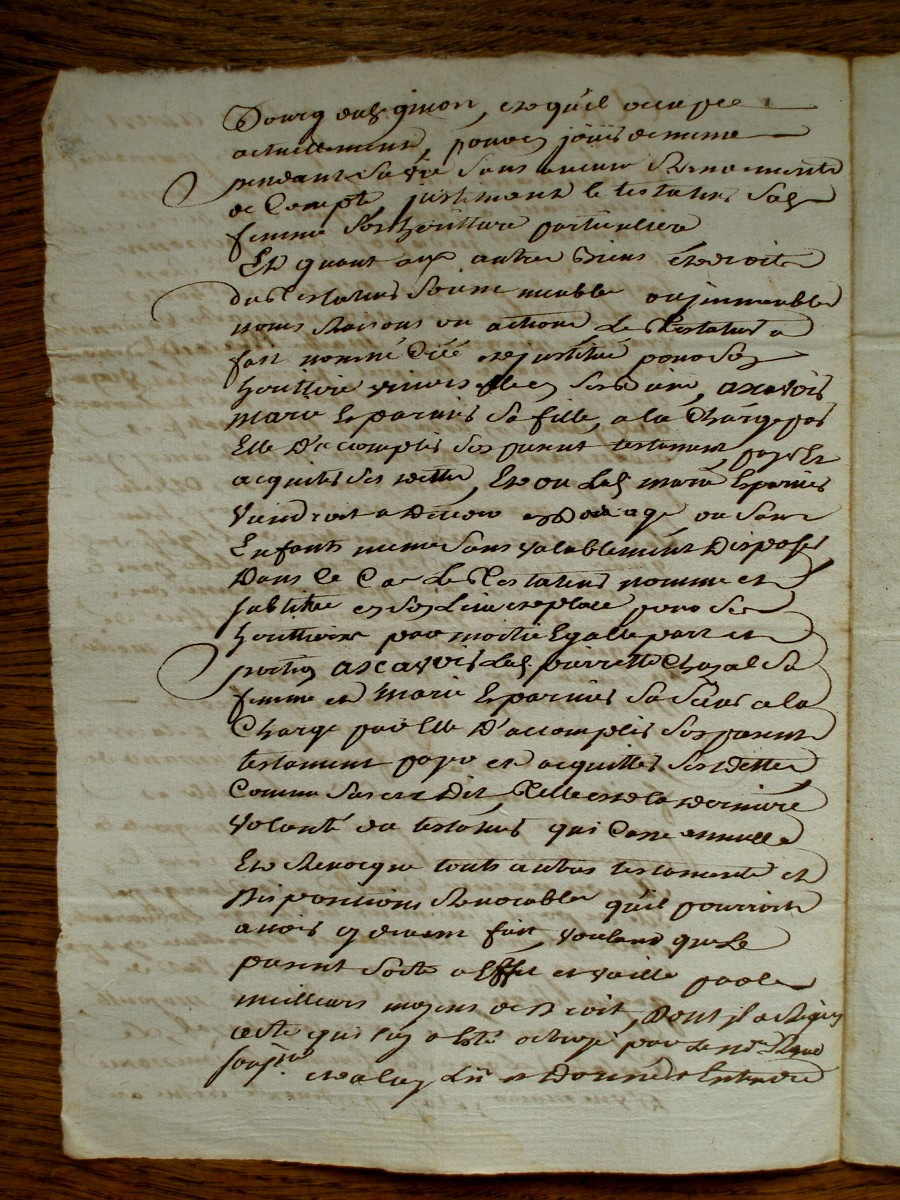 Bourg et qu'il occupe
actuellement, pouvoir jouir de meme
pendant sa vie sans aucun
de Compte, le testateur sad.
femme son heritiere particuliere
Et quant aux autres Biens et droits
du Testateur soient meubles ou jmmeubles
noms Raisons ou actions Le Testateur a
fait nommé Créé et jnstitué pour son
heritiere universelle ascavoir
Marie Eparnier sa fille, a la Charge par
Elle D'accomplir son present testament, payer Et
acquiter ses dettes, Et ou Lad. marie Eparnier
Viendroit a Deceder en age ou sans
Enfants meme sans valablement Disposer
Dans Ce Cas Le Testateur nomme et
substitue en son Lieu et place pour ses
heritieres par moitié Egalle part et
portion ascavoir Lad. pierrette Chazal sa
femme et Marie Eparnier sa Sœur a la
Charge par Elle D'accomplir son present
testament payer et acquitter ses Dettes
Comme sus est Dit, Telle est la Derniere
Volonté du testateur qui Casse annulle
Et Revocque touts autres testaments et
Dispositions Revocables qu'il pourroit
avoir cy devant fait, voulant que Le
present sorte a Effet et vaille par les
meilleurs moyens de Droit, Dont jl a Requis
acte qui luy a Eté octroyé par Le no.re Royal
soussigné
et a luy Lû et Donné a Entendre